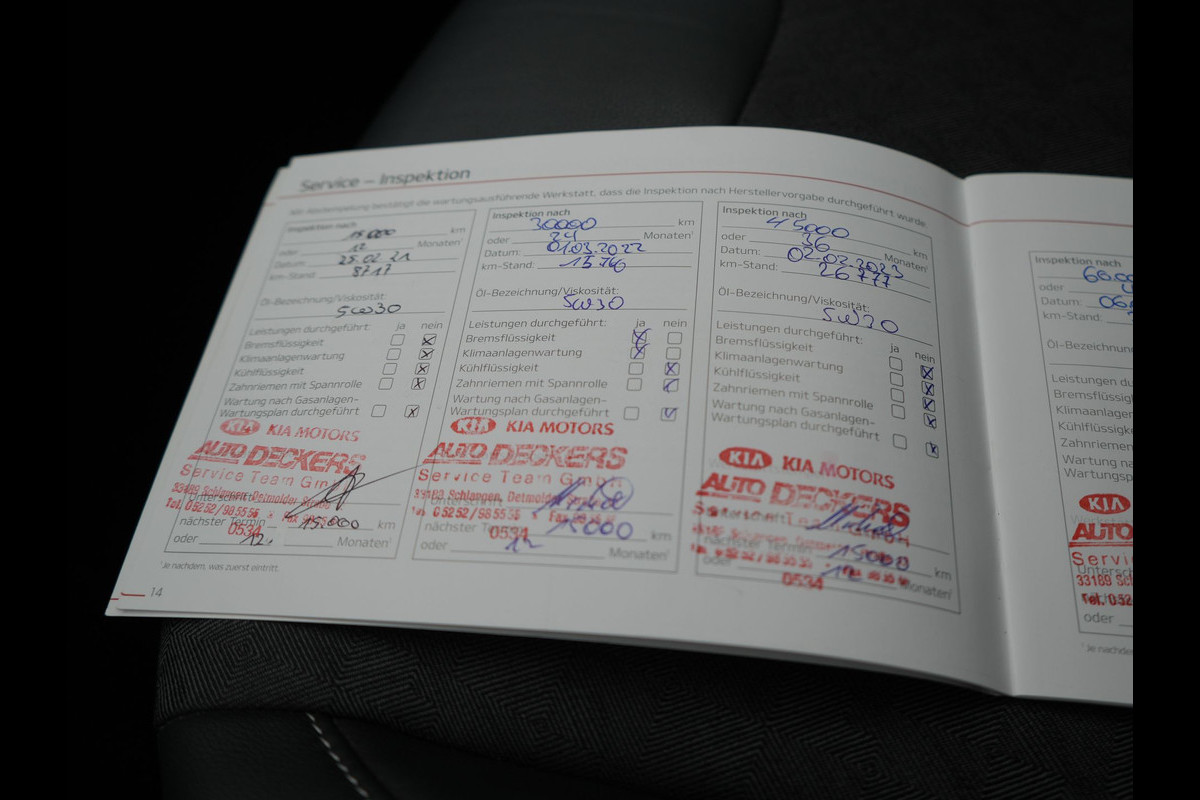 Service – Inspektion
Mit Abstempelung bestätigt die wartungsausführende Werkstatt, dass die Inspektion nach Herstellervorgabe durchgeführt wurde.
Inspektion nach
15.000 km
oder 12 Monaten¹
Datum: 25.02.21
km-Stand: 8717
Öl-Bezeichnung/Viskosität:
5W30
Leistungen durchgeführt: ja nein
Bremsflüssigkeit
Klimaanlagenwartung
Kühlflüssigkeit
Zahnriemen mit Spannrolle
Wartung nach Gasanlagen-
Wartungsplan durchgeführt
KIA KIA MOTORS
AUTO DECKERS
Service Team GmbH
33189 Schlangen, Detmolder
Unterschrift
Tel. 05252/985556 Fax
nächster Termin 15.000 km
0534
oder 12 Monaten¹
¹ Je nachdem, was zuerst eintritt.
14
Inspektion nach
30000 km
oder 24 Monaten¹
Datum: 01.03.2022
km-Stand: 15.746
Öl-Bezeichnung/Viskosität:
5W30
Leistungen durchgeführt: ja nein
Bremsflüssigkeit
Klimaanlagenwartung
Kühlflüssigkeit
Zahnriemen mit Spannrolle
Wartung nach Gasanlagen-
Wartungsplan durchgeführt
KIA KIA MOTORS
AUTO DECKERS
Service Team GmbH
33189 Schlangen, Detmolder
Unterschrift
Tel. 05252/985556 Fax
nächster Termin 15000 km
0534
oder 12 Monaten¹
Inspektion nach
45000 km
oder 36 Monaten¹
Datum: 02.02.2023
km-Stand: 26777
Öl-Bezeichnung/Viskosität:
5W30
Leistungen durchgeführt: ja nein
Bremsflüssigkeit
Klimaanlagenwartung
Kühlflüssigkeit
Zahnriemen mit Spannrolle
Wartung nach Gasanlagen-
Wartungsplan durchgeführt
KIA KIA MOTORS
AUTO DECKERS
Unterschrift
nächster Termin 15000 km
oder 12 Monaten¹
0534
Inspektion nach
60.00
oder
Datum: 06
km-Stand:
Öl-Bezeichnun
Leistungen du
Bremsflüssig
Klimaanlagen
Kühlflüssigke
Zahnriemen
Wartung na
Wartungsp
KIA
AUTO
Servi
33189 Schl
Tel. 052
oder
¹ Je nachdem